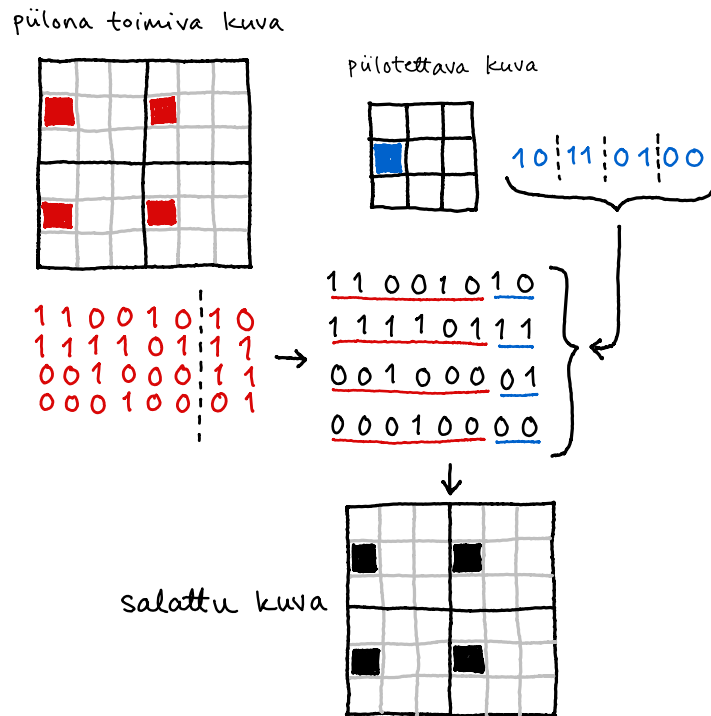 piilona toimiva kuva
piilotettava kuva
10 11 01 00
110010 10
111101 11
001000 11
000100 01
110010 10
111101 11
001000 01
000100 00
salattu kuva